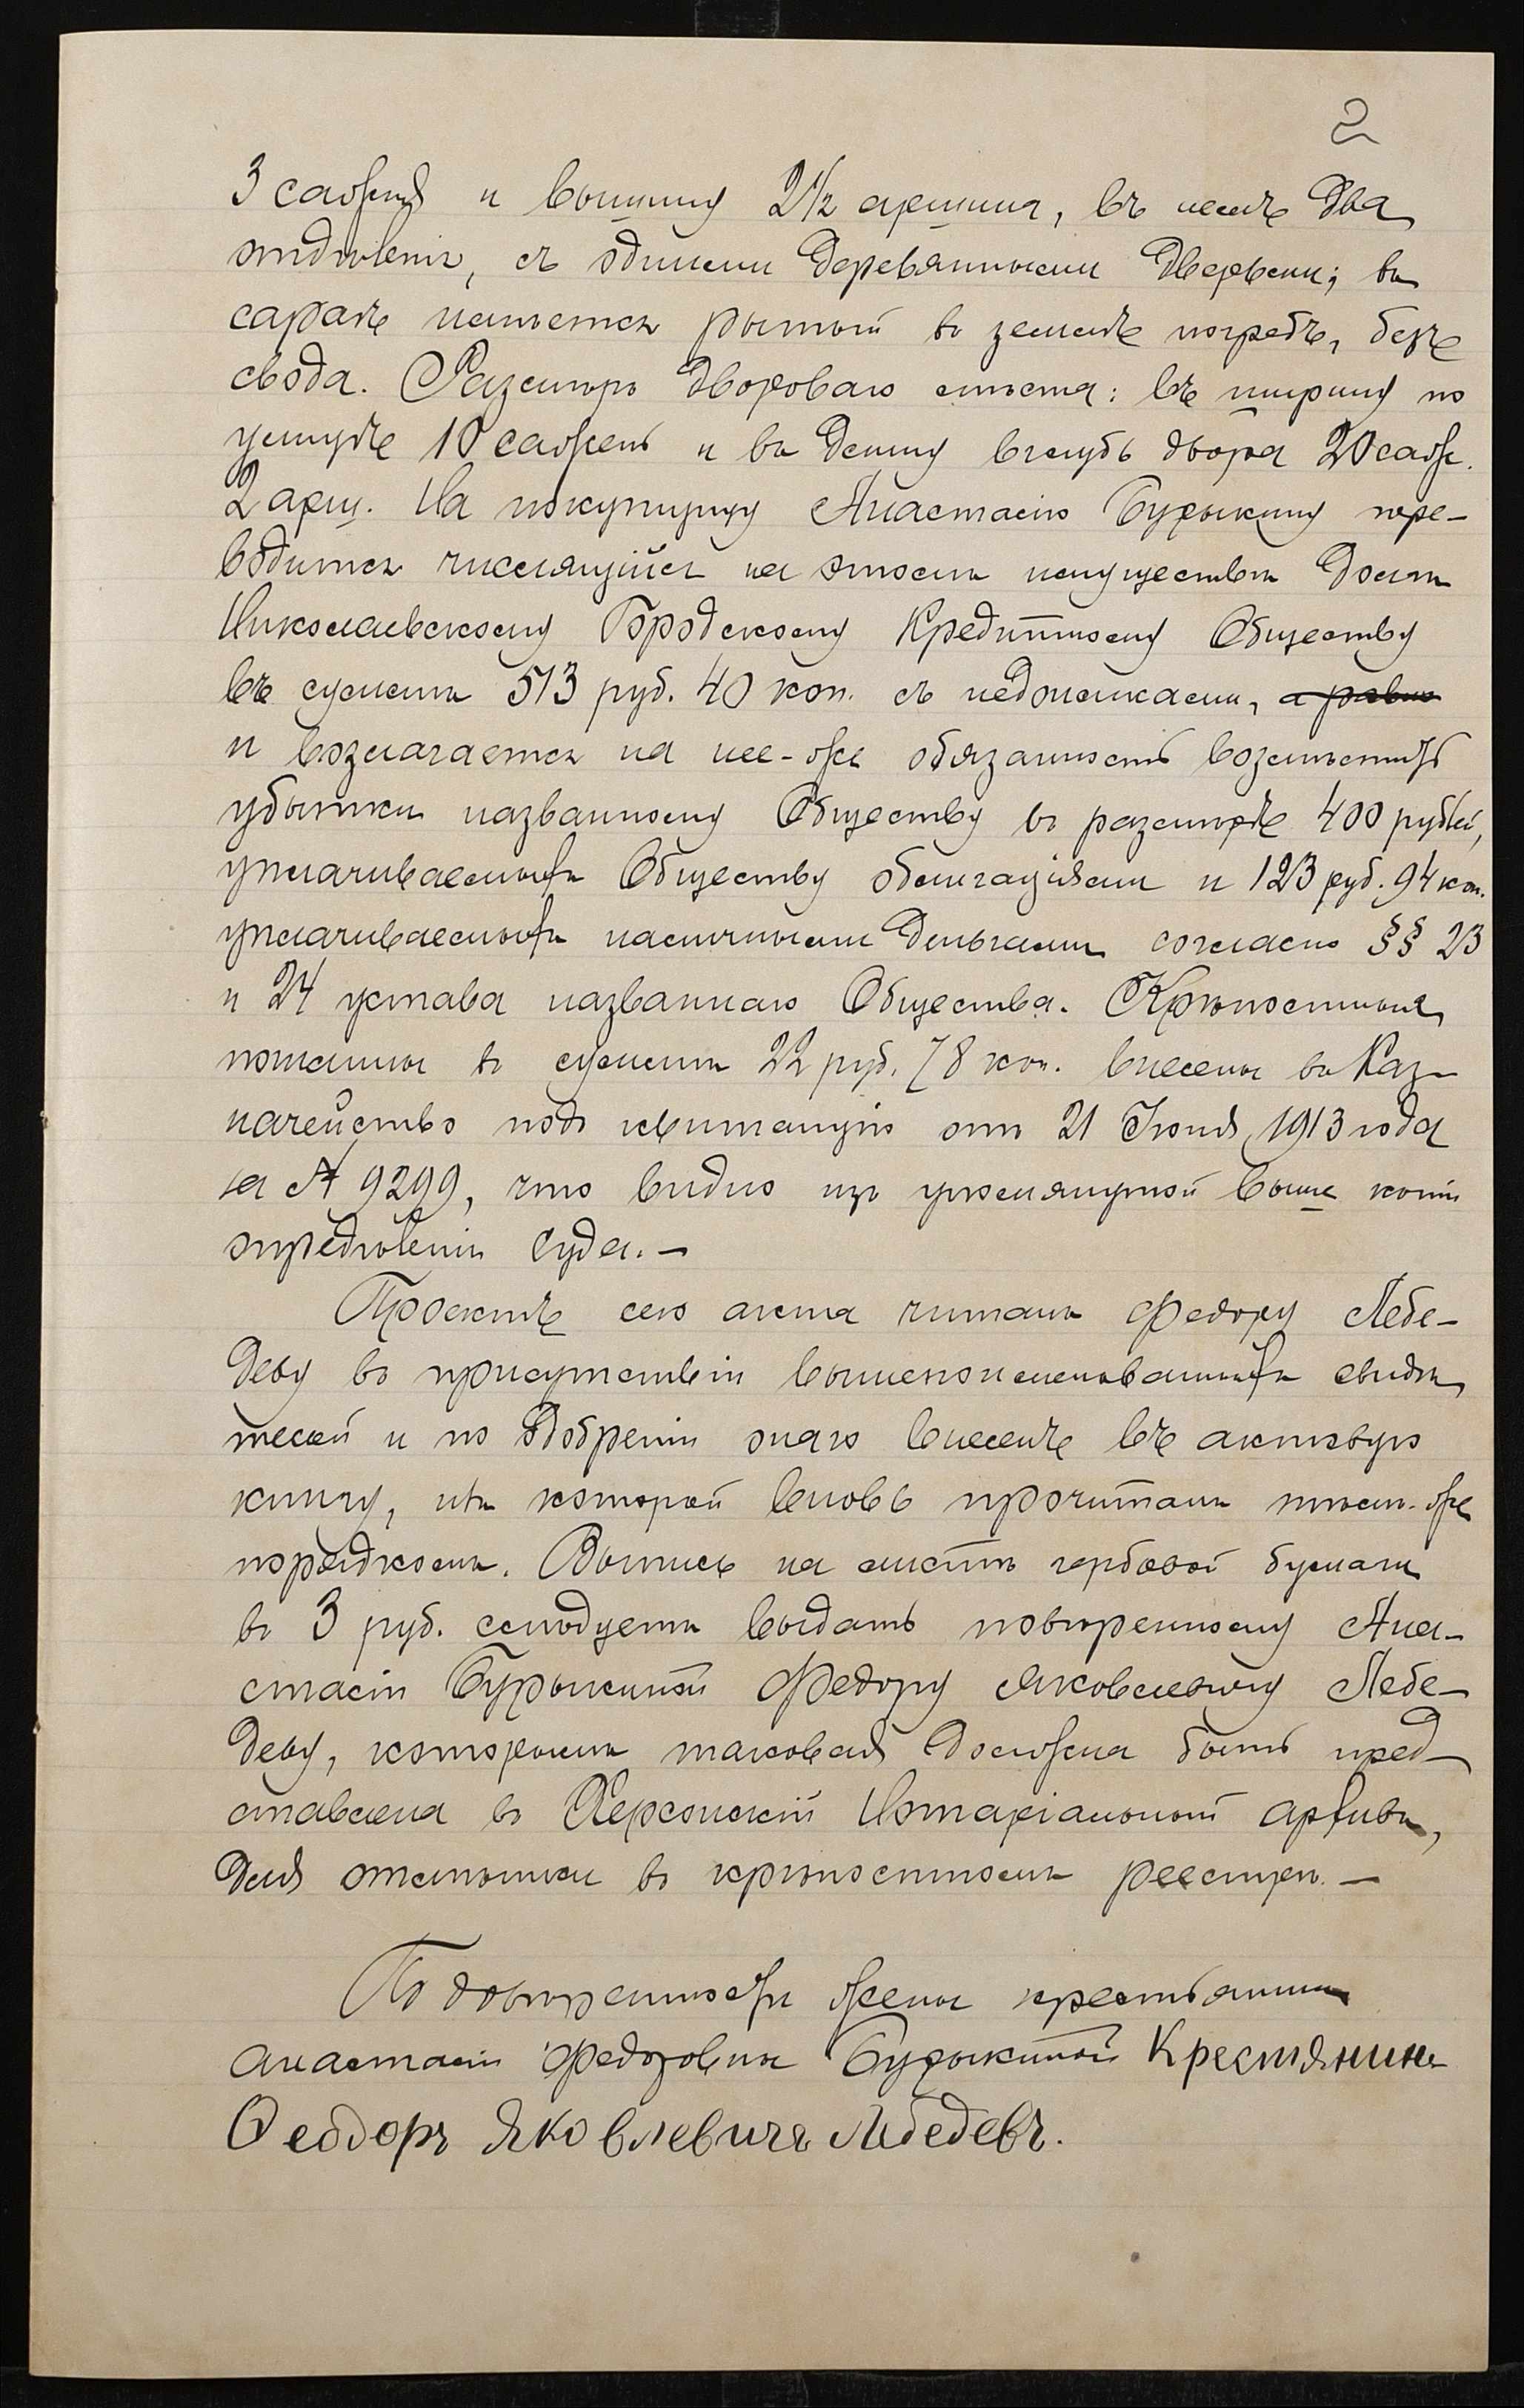 2
3 сажня и вышину 2 1/2 аршина, въ немъ два
отдѣленія, съ одними деревянными дверьми; въ
сараѣ имѣется рытый въ землѣ погребъ, безъ
свода. Размѣръ двороваго мѣста: въ ширину по
улицѣ 10 сажень и въ длину вглубь двора 20 саж.
2 арш. На покупщицу Анастасію Бурыкину пере-
водится числящійся на этомъ имуществѣ долгъ
Николаевскому Городскому Кредитному Обществу
въ суммѣ 513 руб. 40 коп. съ недоимками, а равно
и возлагается на нее-же обязанность возмѣстить
убытки названному Обществу въ размѣрѣ 400 рублей,
уплачиваемыхъ Обществу облигаціями и 123 руб. 94 коп.
уплачиваемыхъ наличными деньгами согласно §§ 23
и 24 устава названнаго Общества. Крѣпостныя
пошлины въ суммѣ 22 руб. 78 коп. внесены въ Каз-
начейство подъ квитанцію отъ 21 Іюня 1913 года
за № 9299, что видно изъ упомянутой выше копіи
опредѣленія Суда. —
Проектъ сего акта читанъ Федору Лебе-
деву въ присутствіи вышепоименованныхъ свидѣ
телей и по одобреніи онаго внесенъ въ актовую
книгу, въ которой вновь прочитанъ тѣмъ-же
порядкомъ. Выпись на листѣ гербовой бумаги
въ 3 руб. слѣдуетъ выдать повѣренному Ана-
стасіи Бурыкиной Федору Яковлевичу Лебе-
деву, которымъ таковая должна быть пред-
ставлена въ Херсонскій Нотаріальный архивъ,
для отмѣтки въ крѣпостномъ реестрѣ. —
По довѣренности жены крестьянина
Анастасіи Федоровны Бурыкиной Крестянинъ
Феодоръ Яковлевичъ Лебедевъ.